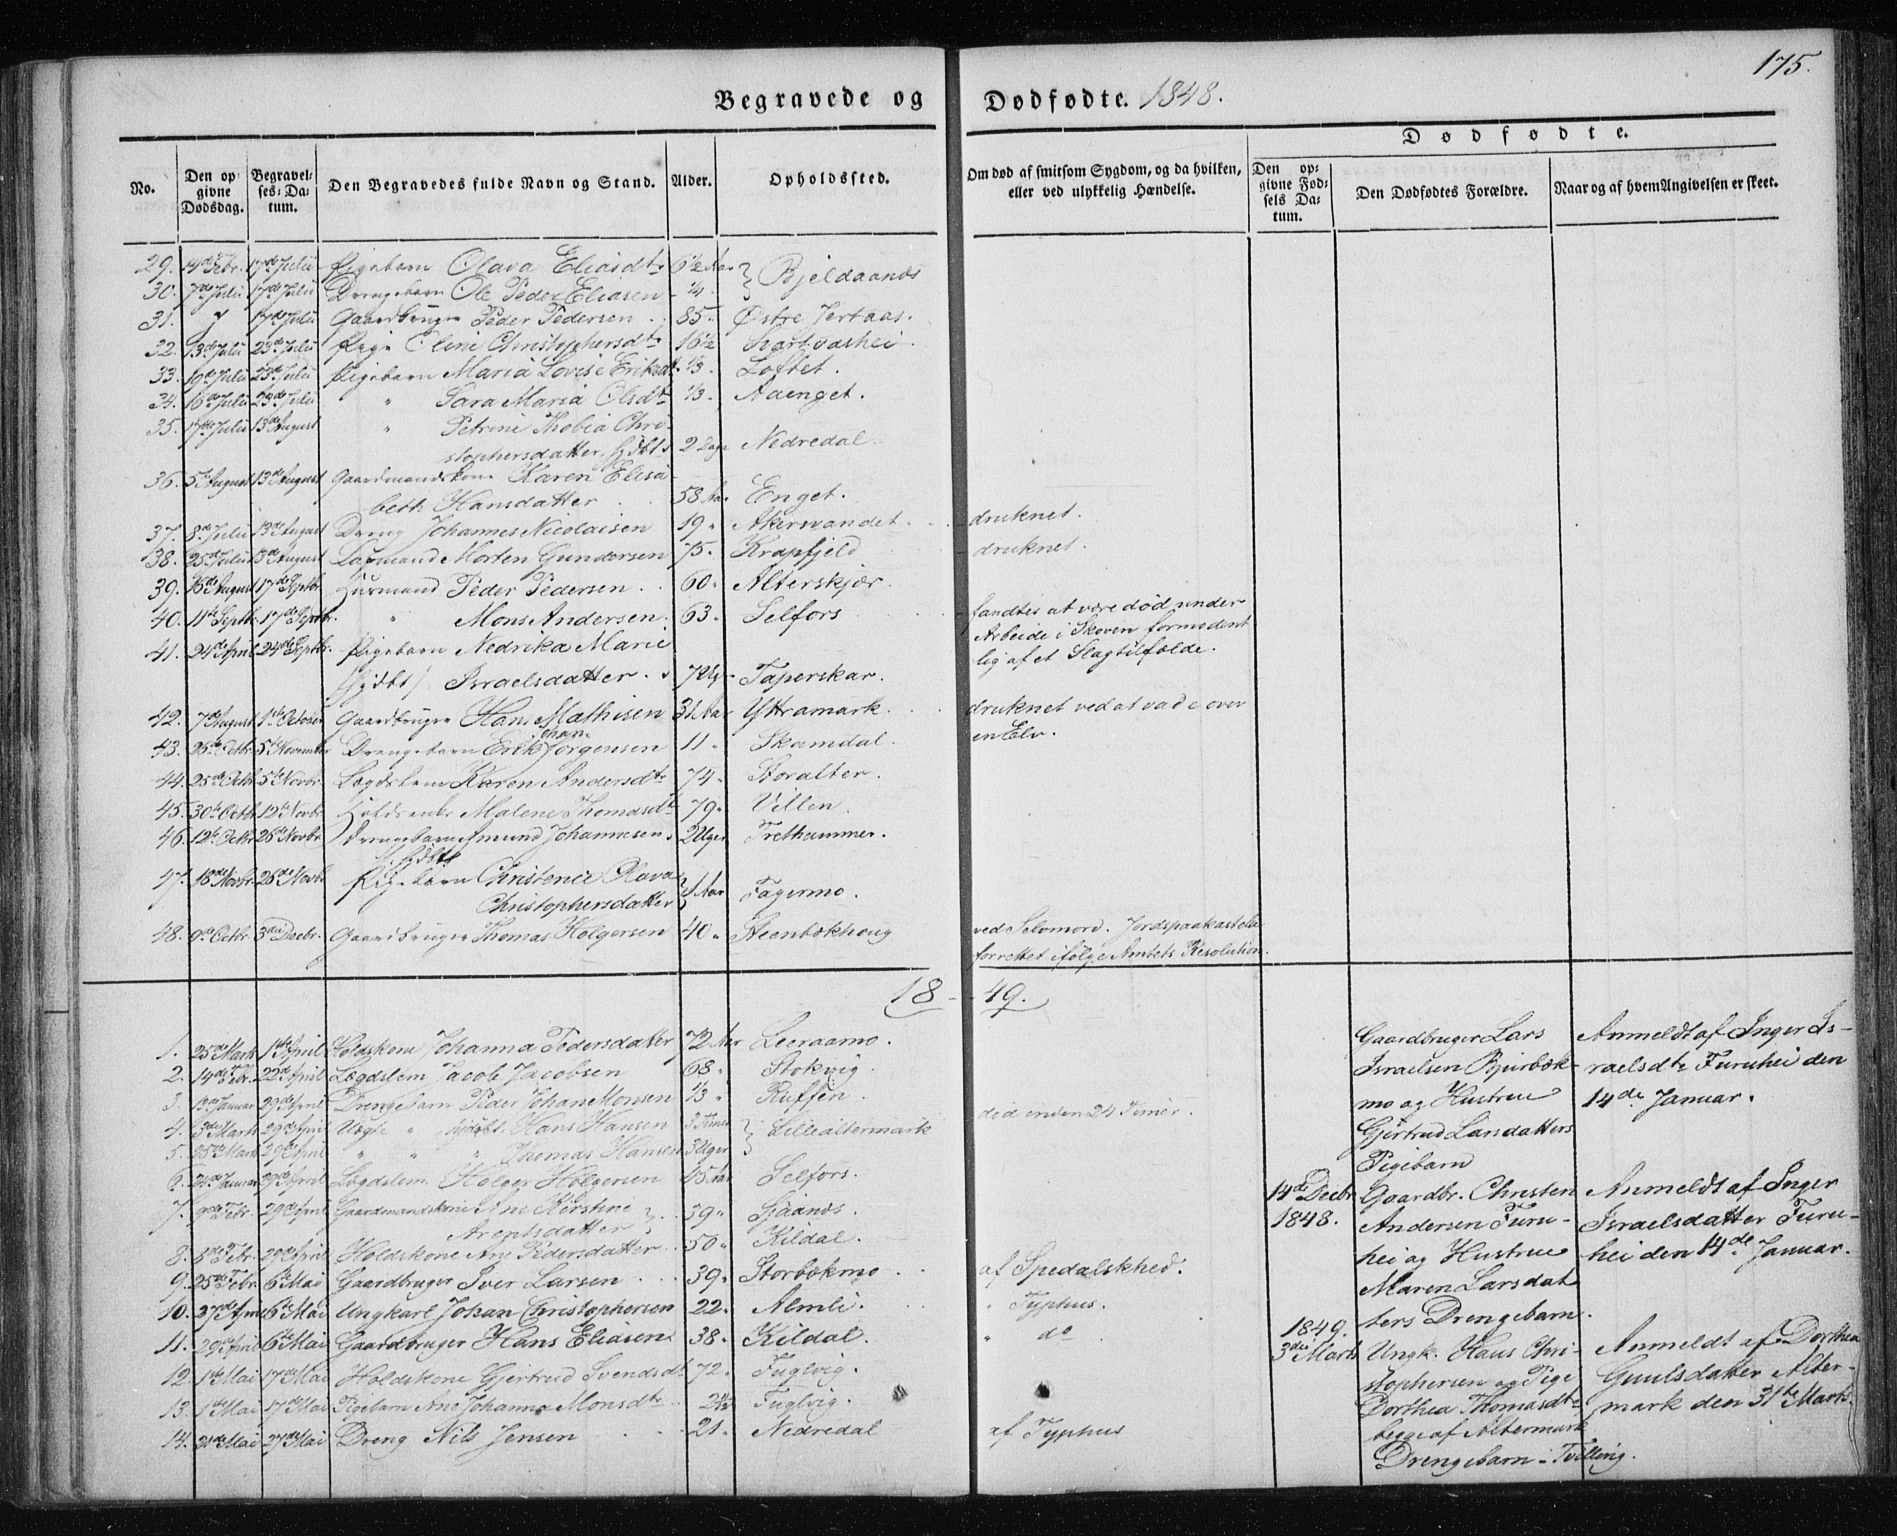 175.
Begravede og Dødfødte. 1848.
Dødfødte.
No. Den opgivne Dødsdag. Begravelses-Datum. Den Begravedes fulde Navn og Stand. Alder. Opholdssted. Om død af smitsom Sygdom, og da hvilken, eller ved ulykkelig Hændelse. Den opgivne Fødsels Datum. Den Dødfødtes Forældre. Naar og af hvem Angivelsen er skeet.
29. 14de Febr. 17de Julii Pigebarn Olava Eliasdtr 6½ Aar } Bjeldaanes
30. 7de Julii 17de Julii Drengebarn Ole Peder Eliasen - ¼
31. 17de Julii Gaardbruger Peder Pedersen . 85. Østre Jertaas.
32. 13de Julii 23de Julii Pige Oline Christophersdtr 16½ Svartvashei.
33. 19de Julii 23de Julii Pigebarn Maria Lovise Eriksdtr ⅓. Loftet.
34. 16de Julii 23de Julii " Sara Maria Olsdtr ⅓. Aaenget.
35. 17de Julii 13de August " Petrine Thobia Chri-
stophersdatter, hjdbt. 2 Dage Nedredal.
36. 5te August 13de August Gaardmandskone Karen Elisa-
beth Hansdatter . 58 Aar Enget.
37. 8de Julii 13de August Dreng Johannes Nicolaisen 19 " Akersvandet. druknet.
38. 25de Julii 13de August Morten Gundersen 75. Krapfjeld druknet.
39. 16de August 17de Septbr. Huusmand Peder Pedersen . 60. Alterskjær.
40. 11te Septbr. 17de Septbr. " Mons Andersen. 63. Selfors fandtes at være død under
Arbeide i Skoven formodent-
lig af et Slagtilfælde.
41. 24de April 24de Septbr. Pigebarn Nedrika Marie
(hjdbt) Israelsdatter. Taperskar.
42. 7de August 1ste October Gaardbruger Hans Mathisen 31 Aar Yttramark. druknet ved at vade over
en Elv.
43. 26de Octbr. 5te November Drengebarn Erik Johan Jørgensen 11 " Skamdal.
44. 25de Octbr 5te Novbr. Lægdslem Karen Andersdtr 74. Storalter.
45. 30te Octbr 12te Novbr. Malene Thomasdtr 79. Villen.
46. 12te Octbr 26de Novbr. Drengebarn Amund Johannesen 2 Uger Tretthammer.
hjdbt
47. 18de Novbr. 26de Novbr. Pigebarn Christence Olava
Christophersdatter Aar Fagermo.
48. 9de Octbr. 3die Decbr. Gaardbruger Thomas Holgersen 40. Steenbækhoug ved Selvmord. Jordspaakastelse
forrettet ifølge Amtets Resolution.
18 - 49.
1. 25de Marts 1ste April Holdskone Johanna Pedersdatter 72 Aar Leeraamo.
2. 14de Febr. 22de April Lægdslem Jacob Jacobsen 68. Stokvig.
3. 13de Januar 29de April Drengebarn Peder Johan Monsen ⅓ " Ruffen.
4. 3die Marts 29de April Uægte " hjdbt. Hans Hansen 3 Timer } Lillealtermark død inden 24 Timer.
5. 25de Marts 29de April " " " Thomas Hansen 3 Uger
6. 24de Januar 29de April Lægdslem Holger Holgersen 45 Aar Selfors.
7. 9de Febr. 29de April Gaardmandskone Ane Kirstine
Arentsdatter . 39. Sjaanes.
8. 8de Febr. 29de April Holdskone Ane Pedersdatter . 50. Kildal.
9. 25de Febr. 6te Mai Gaardbruger Iver Larsen . . . 39. Storbækmo af Spedalskhed.
10. 27de April 6te Mai Ungkarl Johan Christophersen 22. Almli. " Typhus.
11. 29de April 6te Mai Gaardbruger Hans Eliasen 38. Kildal. " do
12. 1ste Mai 17de Mai Holdskone Gjertrud Svendsdtr 72. Fuglvig.
13. 1ste Mai 17de Mai Pigebarn Ane Johanna Monsdtr 2½ Fuglvig.
14. 21de Mai 27de Mai Dreng Nils Jensen . . . 21. Nedredal af Typhus
Gaardbruger Lars
Israelsen Bjerbæk-
mo og Hustrue
Gjertrud Larsdatters
Pigebarn
Anmeldt af Inger Is-
raelsdtr Furuhei den
14de Januar.
14de Decbr
1848.
Gaardbr. Christen
Andersen Furu-
hei og Hustrue
Maren Larsdat-
ters Drengebarn.
Anmeldt af Inger
Israelsdatter Furu-
hei den 14de Januar.
1849.
3die Marts
Ungk. Hans Chri-
stophersen og Pige
Dorthea Thomasdtr
begge af Altermark
Drengebarn - Tvilling.
Anmeldt af Dorthea
Guulsdatter Alter-
mark den 31te Marts.